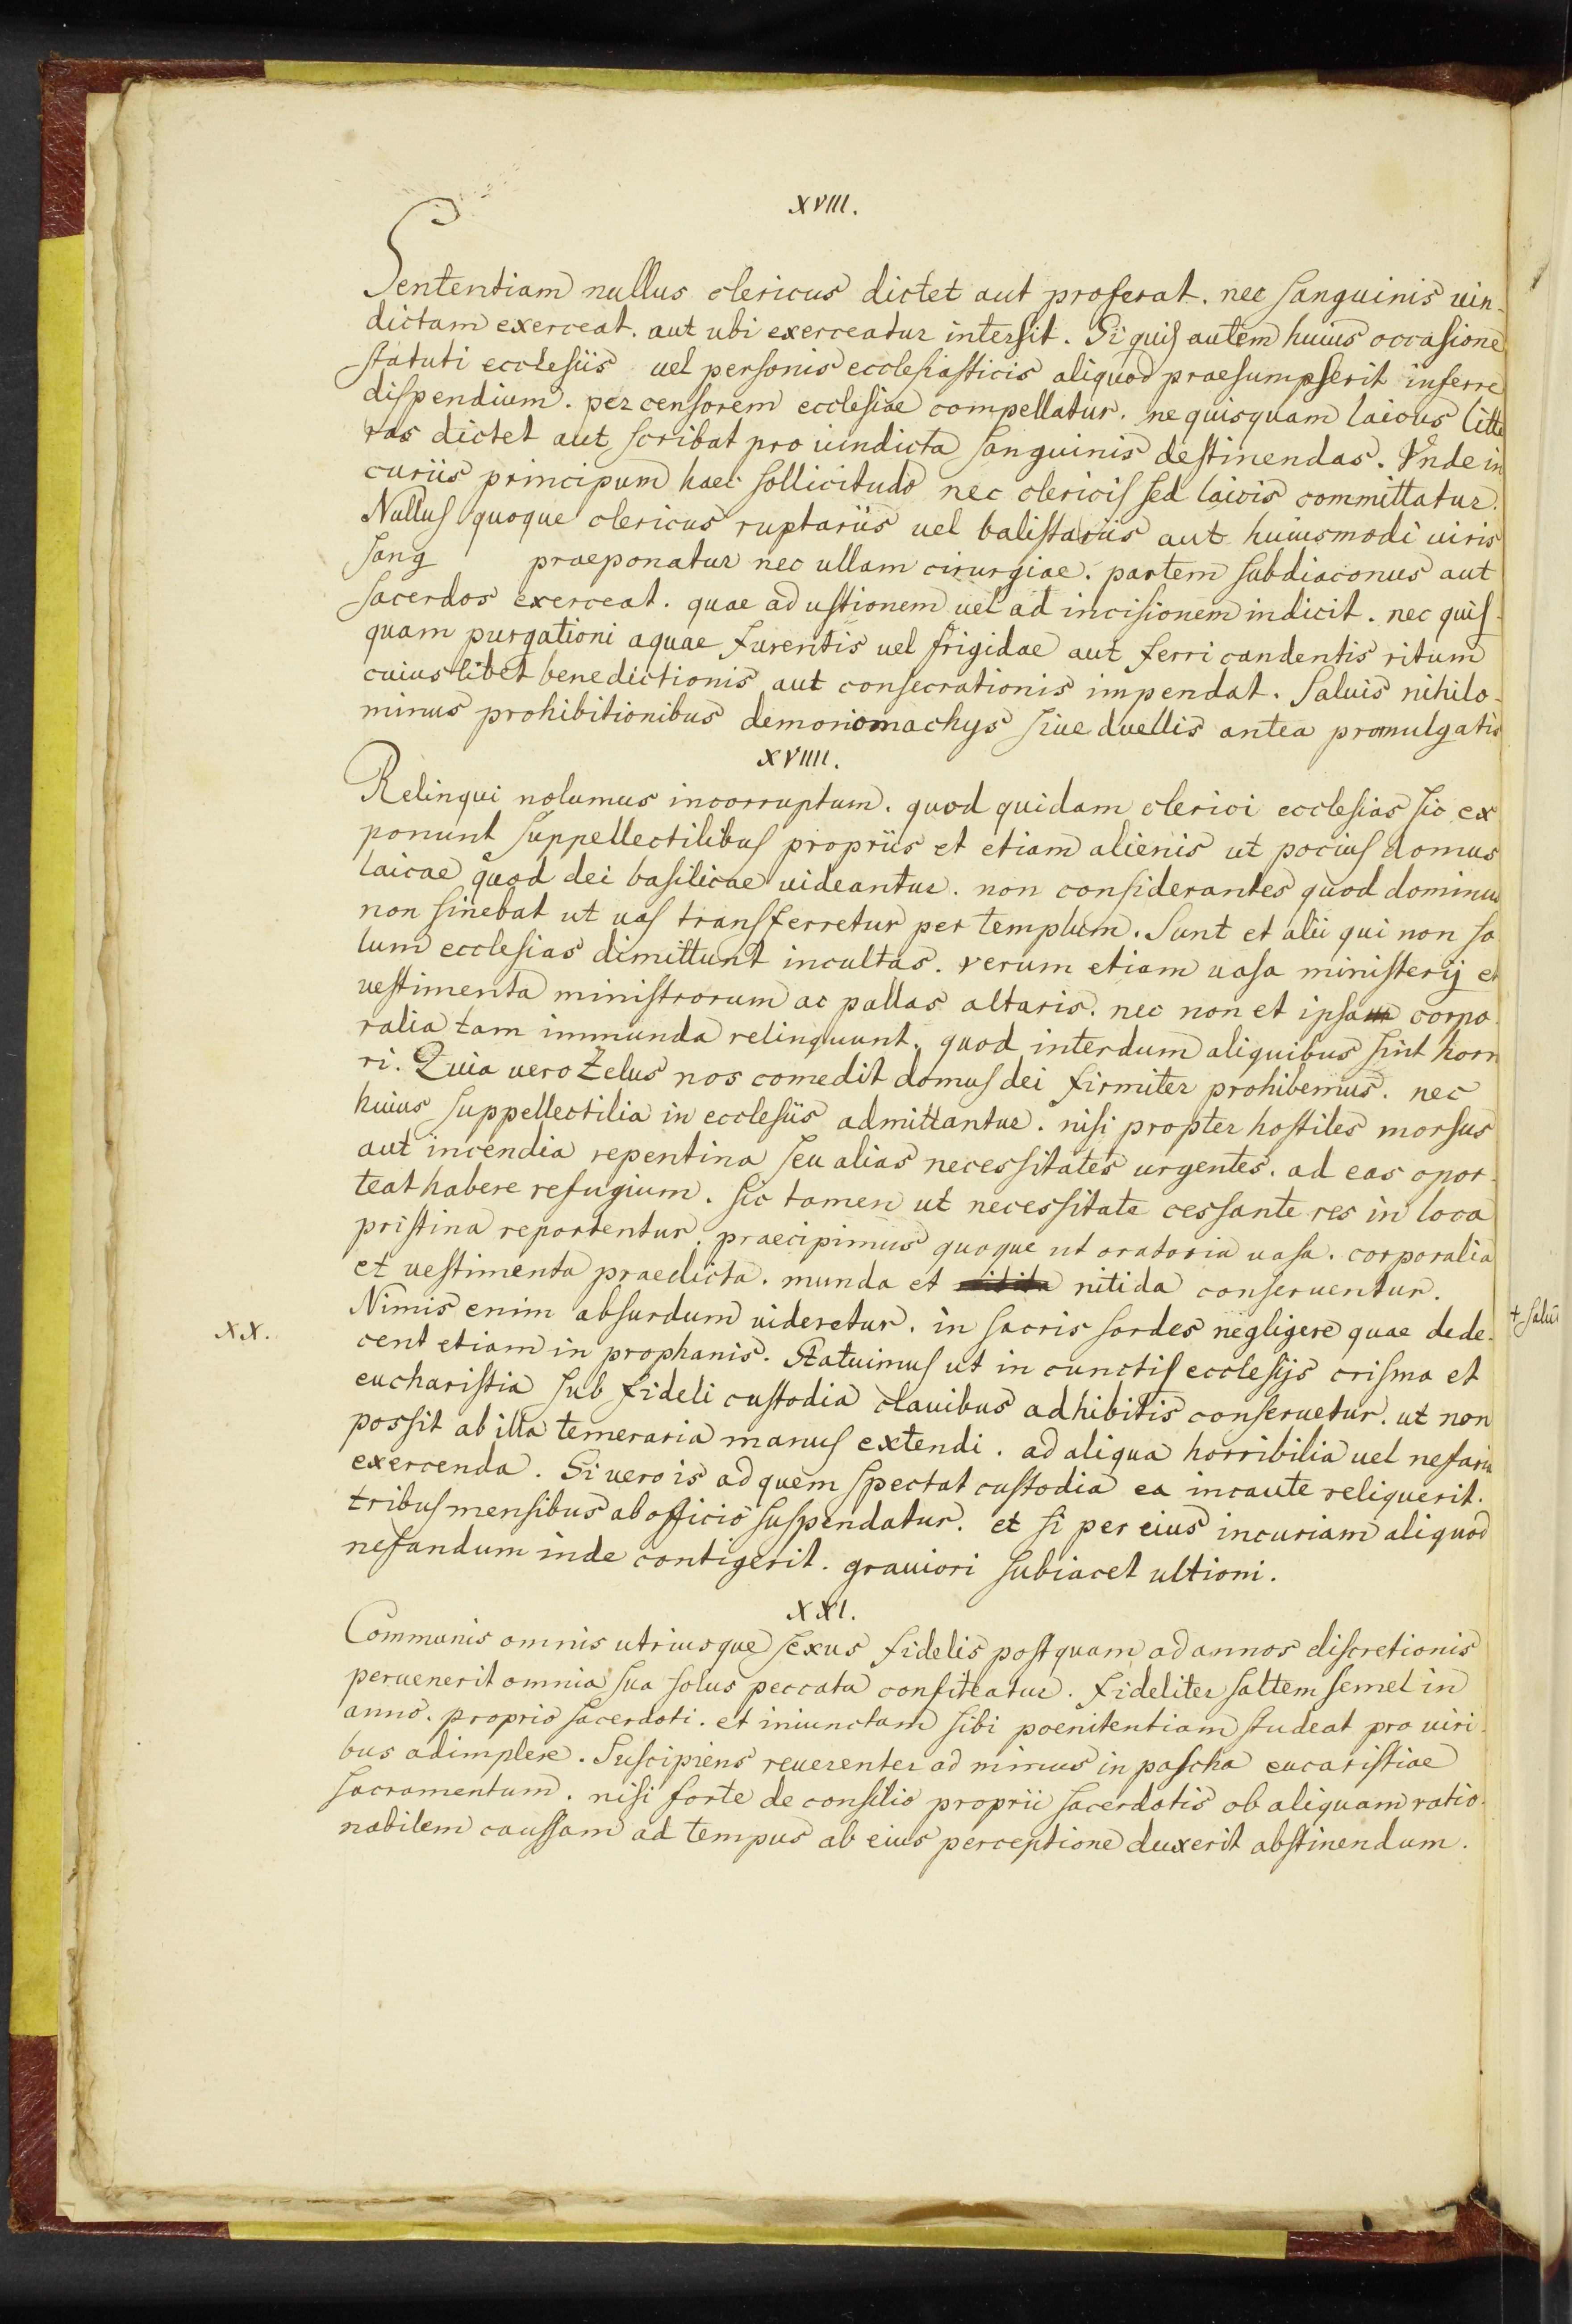 XVIII.
Sententiam nullus clericus dictet aut proferat. nec sanguinis uin-
dictam exerceat. aut ubi exerceatur intersit. Si quis autem huius occasione
statuti ecclesiis uel personis ecclesiasticis aliquod praesumpserit inferre
dispendium. per censorem ecclesiae compellatur. ne quisquam laicus litte
ras dictet aut scribat pro uindicta sanguinis destinendas. Vnde in
curiis principum haec sollicitudo nec clericis sed laicis committatur.
Nullus quoque clericus ruptariis uel balistariis aut huiusmodi uiris
sang praeponatur nec ullam cirurgiae. partem subdiaconus aut
sacerdos exerceat. quae ad ustionem uel ad incisionem indicit. nec quis-
quam purgationi aquae furentis uel frigidae aut ferri candentis ritum
cuiuslibet benedictionis aut consecrationis impendat. Saluis nihilo-
minus prohibitionibus demonomachys siue duellis antea promulgatis
XVIIII.
Relinqui nolumus incorruptum. quod quidam clerici ecclesias sic ex
ponunt suppellectilibus propriis et etiam alienis ut pocius domus
laicae quod dei basilicae uideantur. non considerantes quod dominus
non sinebat ut uas transferretur per templum. Sunt et alii qui non so
lum ecclesias dimittunt incultas. verum etiam uasa ministerij et
uestimenta ministrorum ac pallas altaris. nec non et ipsam corpo
ralia tam immunda relinquunt. quod interdum aliquibus sint horro
ri. Quia uero Zelus nos comedit domus dei firmiter prohibemus. nec
huius suppellectilia in ecclesiis admittantur. nisi propter hostiles morsus
aut incendia repentina seu alias necessitates urgentes. ad eas opor-
teat habere refugium. sic tamen ut necessitate cessante res in loca
pristina reportentur. praecipimus quoque ut oratoria uasa. corporalia
et uestimenta praedicta. munda et nitida conseruentur.
Nimis enim absurdum uideretur. in sacris sordes negligere quae dede-
XX.
cent etiam in prophanis. Statuimus ut in cunctis ecclesijs crisma et
eucharistia sub fideli custodia clauibus adhibitis conseruetur. ut non
possit ab illa temeraria manus extendi. ad aliqua horribilia uel nefaria
exercenda. Si uero is ad quem spectat custodia ea incaute reliquerit.
tribus mensibus ab officio suspendatur. et si per eius incuriam aliquod
nefandum inde contigerit. grauiori subiacet ultioni.
XXI.
Communis omnis utriusque sexus fidelis postquam ad annos discretionis
peruenerit omnia sua solus peccata confiteatur. fideliter saltem semel in
anno. proprio sacerdoti. et iniunctam sibi poenitentiam studeat pro uiri-
bus adimplere. Suscipiens reuerenter ad minus in pascha eucaristiae
sacramentum. nisi forte de consilio proprii sacerdotis ob aliquam ratio-
nabilem caussam ad tempus ab eius perceptione duxerit abstinendum.